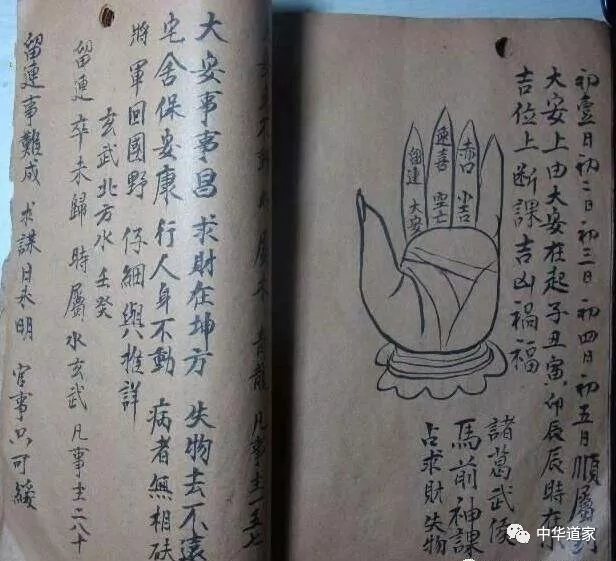 初壹日初二日初三日初四日初五日順屬
大安上由大安在起子丑寅卯辰辰時在
吉位上断課吉凶禍福
赤口 小吉
速喜 空亡
留連 大安
諸葛武侯
馬前神課
占求財失物
青龍 凡事主一五七
大安事事昌 求財在坤方 失物去不遠
宅舍保安康 行人身不動 病者無相砆
將軍回國野 仔細與推詳
玄武北方水 壬癸
留連 卒未歸 時屬水玄武 凡事主二八十
留連事難成 求謀日未明 官事只可緩
中华道家